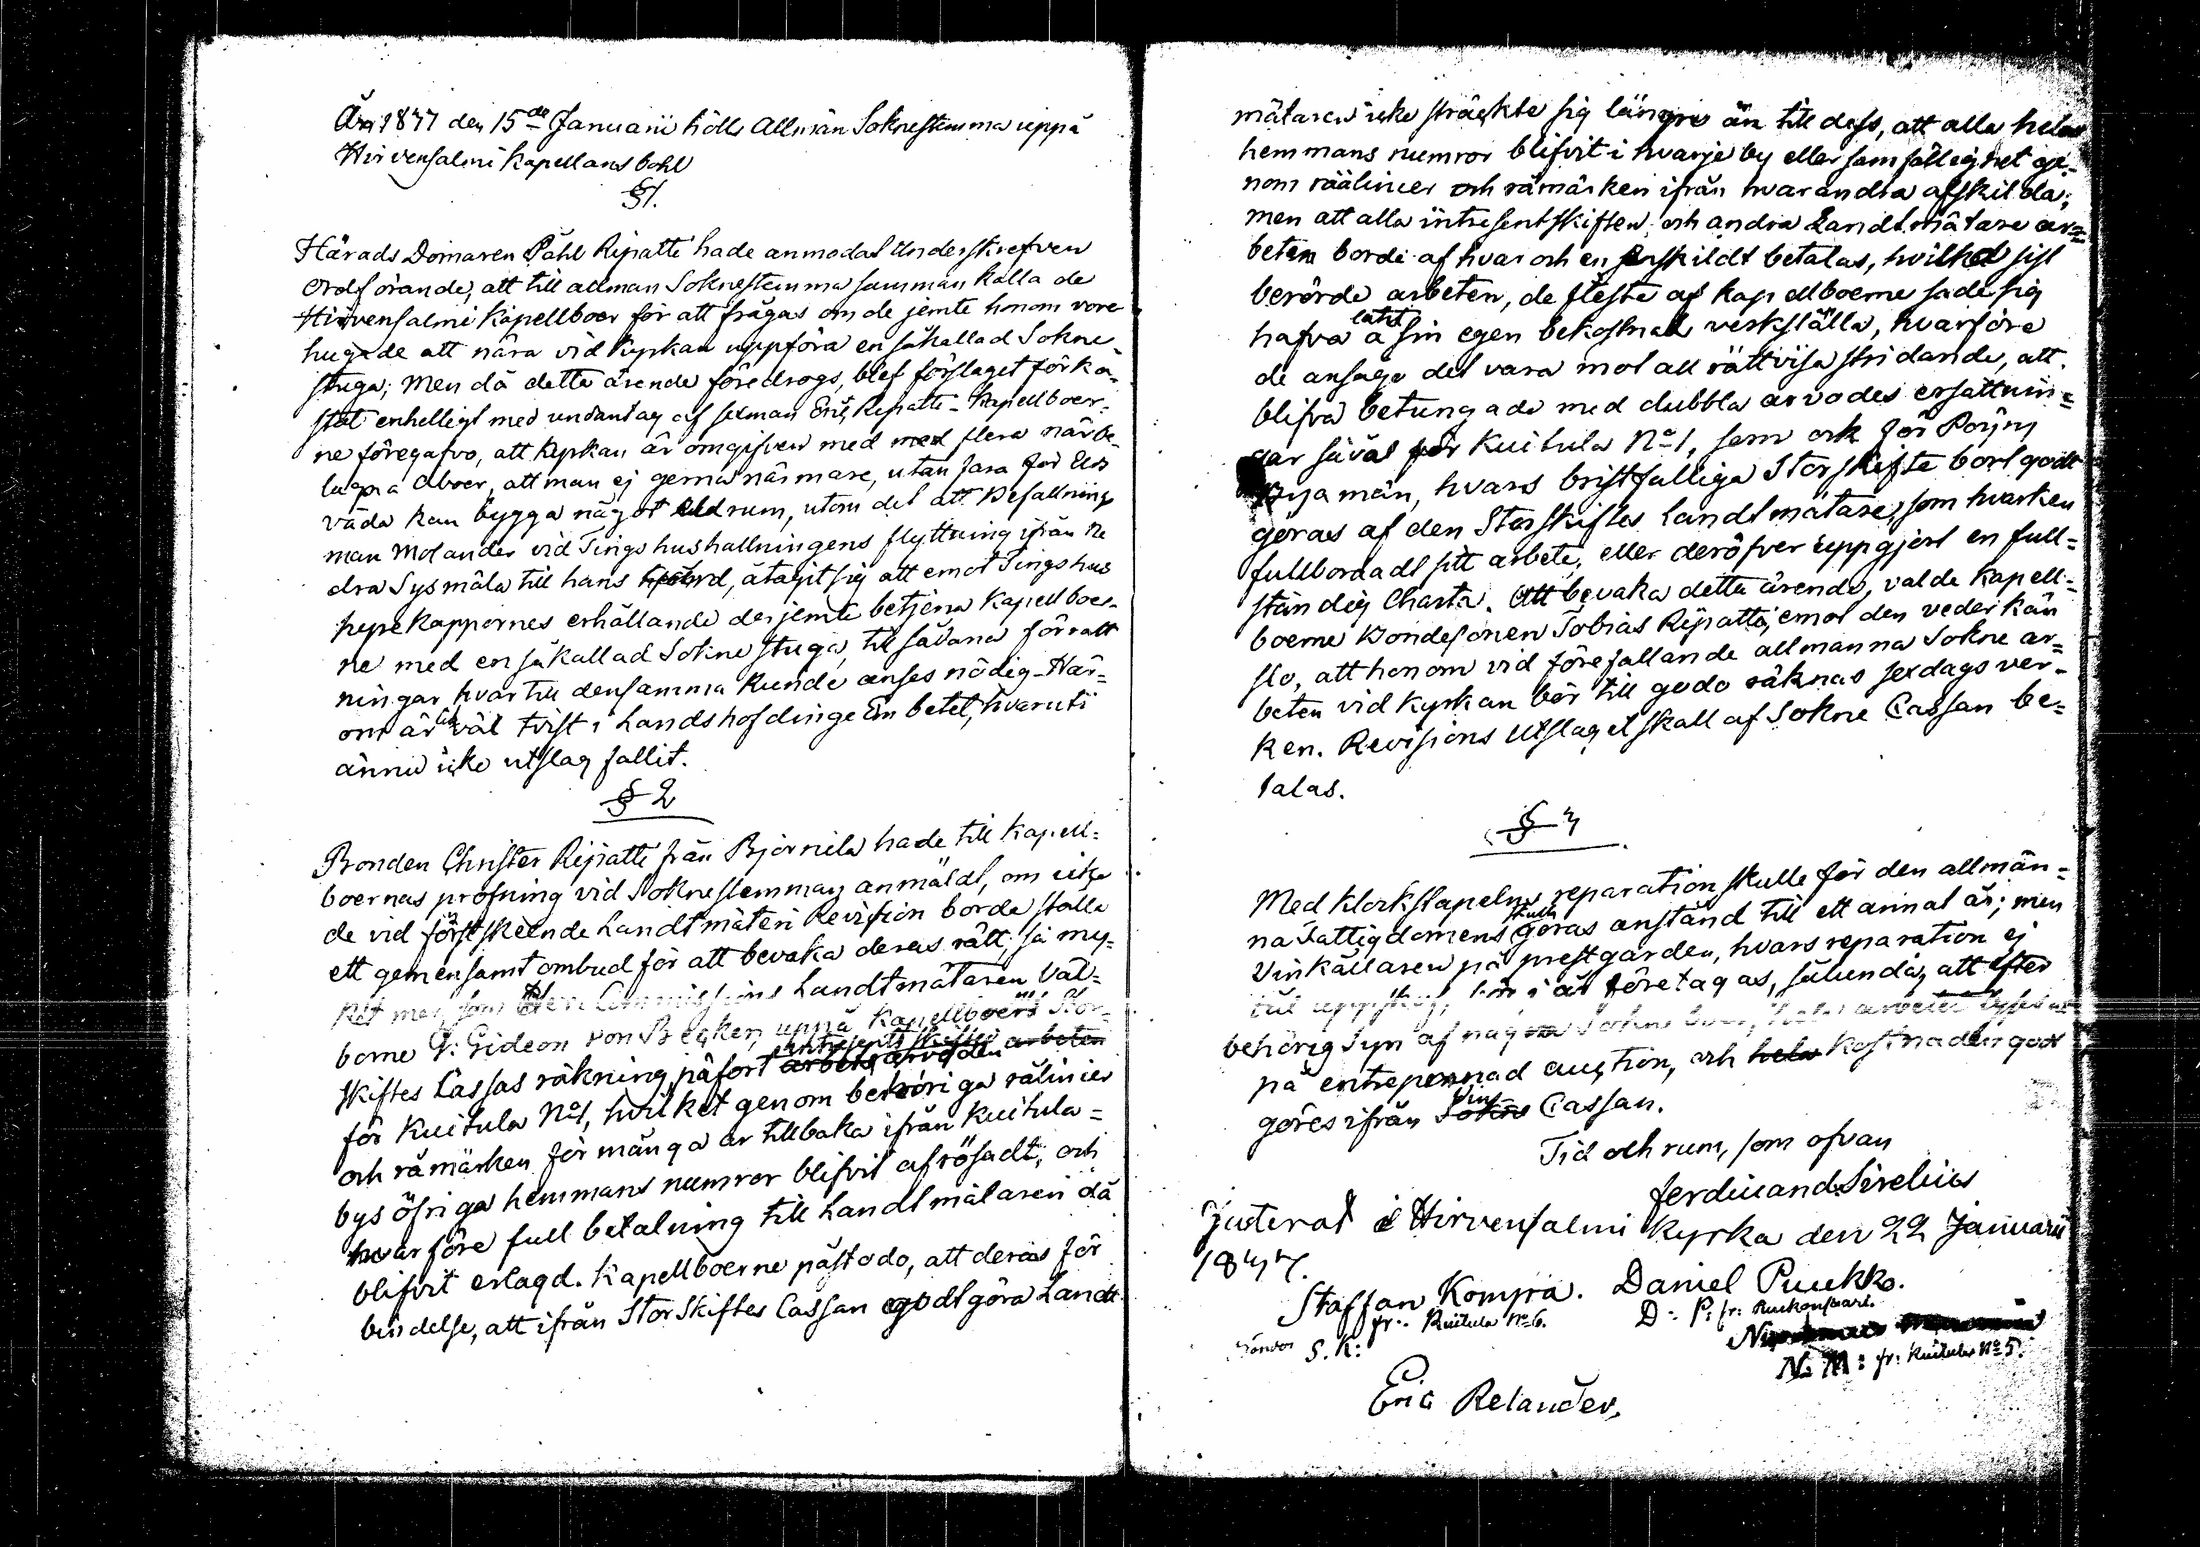 År 1877 den 15de Januarii hölls Allmän Soknestemma uppå
Hirvensalmi Kapellans bohl
§ 1.
Härads Domaren Påhl Ripatti hade anmodat Underskrefven
Ordförande, att till allmän Soknestemma samman kalla de
Hirvensalmi Kapellboer för att frågas om de jemte honom vore
hugade att nära vid Kyrkan uppföra en såkallad Sokne
stuga; Men då detta ärende föredrogs, blef förslaget förka-
stat enhelligt med undantag af sexman Eric Ripatti - Kapellboer-
ne föregafvo, att Kyrkan är omgifven med med flera närbe-
lägna Åboer, att man ej gerna närmare, utan fara for Elds
våda kan bygga något Eldrum, utom det att Befallnings
man Molander vid Tings hushallningens flyttning ifrån
dra Sysmäla till hans, åtagit sig att emot Tings hus
kappornes erhållande derjemte betjena Kapellboer-
ne med en såkallad Sokne stuga, till sådana förratt
ningar, hvartill densamma kunde anses nödig - Här-
om är väl tvist i Landshofdinge Embetet, hvaruti
ännu icke utslag fallit.
§ 2
Bonden Christer Ripatti från Björnila hade till Kapell=
boernas profning vid Soknestemman anmäldt, om icke
de vid först skeende Landtmäteri Revision borde stälta
ett gemensamt ombud för att bevaka deras rätt, så my=
ket mer, som Commissions Landtmätaren Väl=
borne G: Gideon von Becker, uppå Kapellboers Stor-
skiftes Cassas räkning, påfört intresentskiftes arbeten
för Kuitula No 1, hvilket genom behöriga rålinier
och råmärken för många år tillbaka ifrån Kuitula=
bys öfriga hemmans numror blifvit afrösadt; och
hvarföre full betalning till Landtmätaren då
blifvit erlagd. Kapellboerne påstodo, att deras för
bindelse, att ifrån Storskiftes Cassan godtgöra Landt
mätaren icke sträckte sig längre än till dess, att alla hela
hemmans numror blifvit i hvarje by eller samfällighet ge-
nom råälinier och råmärken ifrån hvarandra afskilda;
men att alla intresentskiften och andra Landtmätare ar=
beten borde af hvar och en enskildt betalas, hvilket sist
berörde arbeten, de fleste af Kapellboerne sade sig
hafva låtit å sin egen bekostnad verkställa, hvarföre
de ansago det vara mot all rättvisa stridande, att
blifva betungade med dubbla arvodes ersättnin=
gar såväl för Kuitula No 1, som ock för
män, hvars bristfälliga Storskifte bort godt
göras af den Storskiftes Landtmätare, som hvarken
fullbordadt sitt arbete, eller deröfver uppgjort en full=
ständig Charta. Att bevaka detta ärende, valde Kapell=
boerne Bondesonen Tobias Ripatti, emot den vederkän
slo, att honom vid förefallande allmänna Sokne ar=
beten vid Kyrkan bör till godo räknas sex dags ver-
ken. Revisions Utslaget skall af Sokne Cassan be=
talas.
§ 3
Med klockstapelns reparation skulle för den allmän=
na Fattigdomens skull göras anstånd till ett annat år; men
Vinkällaren på prestgården, hvars reparation ej
tål uppskof, bör i år företagas, sålunda, att efter
behörig Syn af någre Sokne boer, hela arbetet
på entreprenad auction, och kostnaden godt
göres ifrån Vin Cassan.
Tid och rum, som ofvan
Ferdinand Sirelius
Justerat i Hirvensalmi Kyrka den 22 Januarii
1877.
Staffan Kompra. Daniel Puukko.
fr: Kuitula No 6. D: P: fr: Puukonsaari.
S. K:
N: M: fr: Kuitula No 5.
Eric Relander.